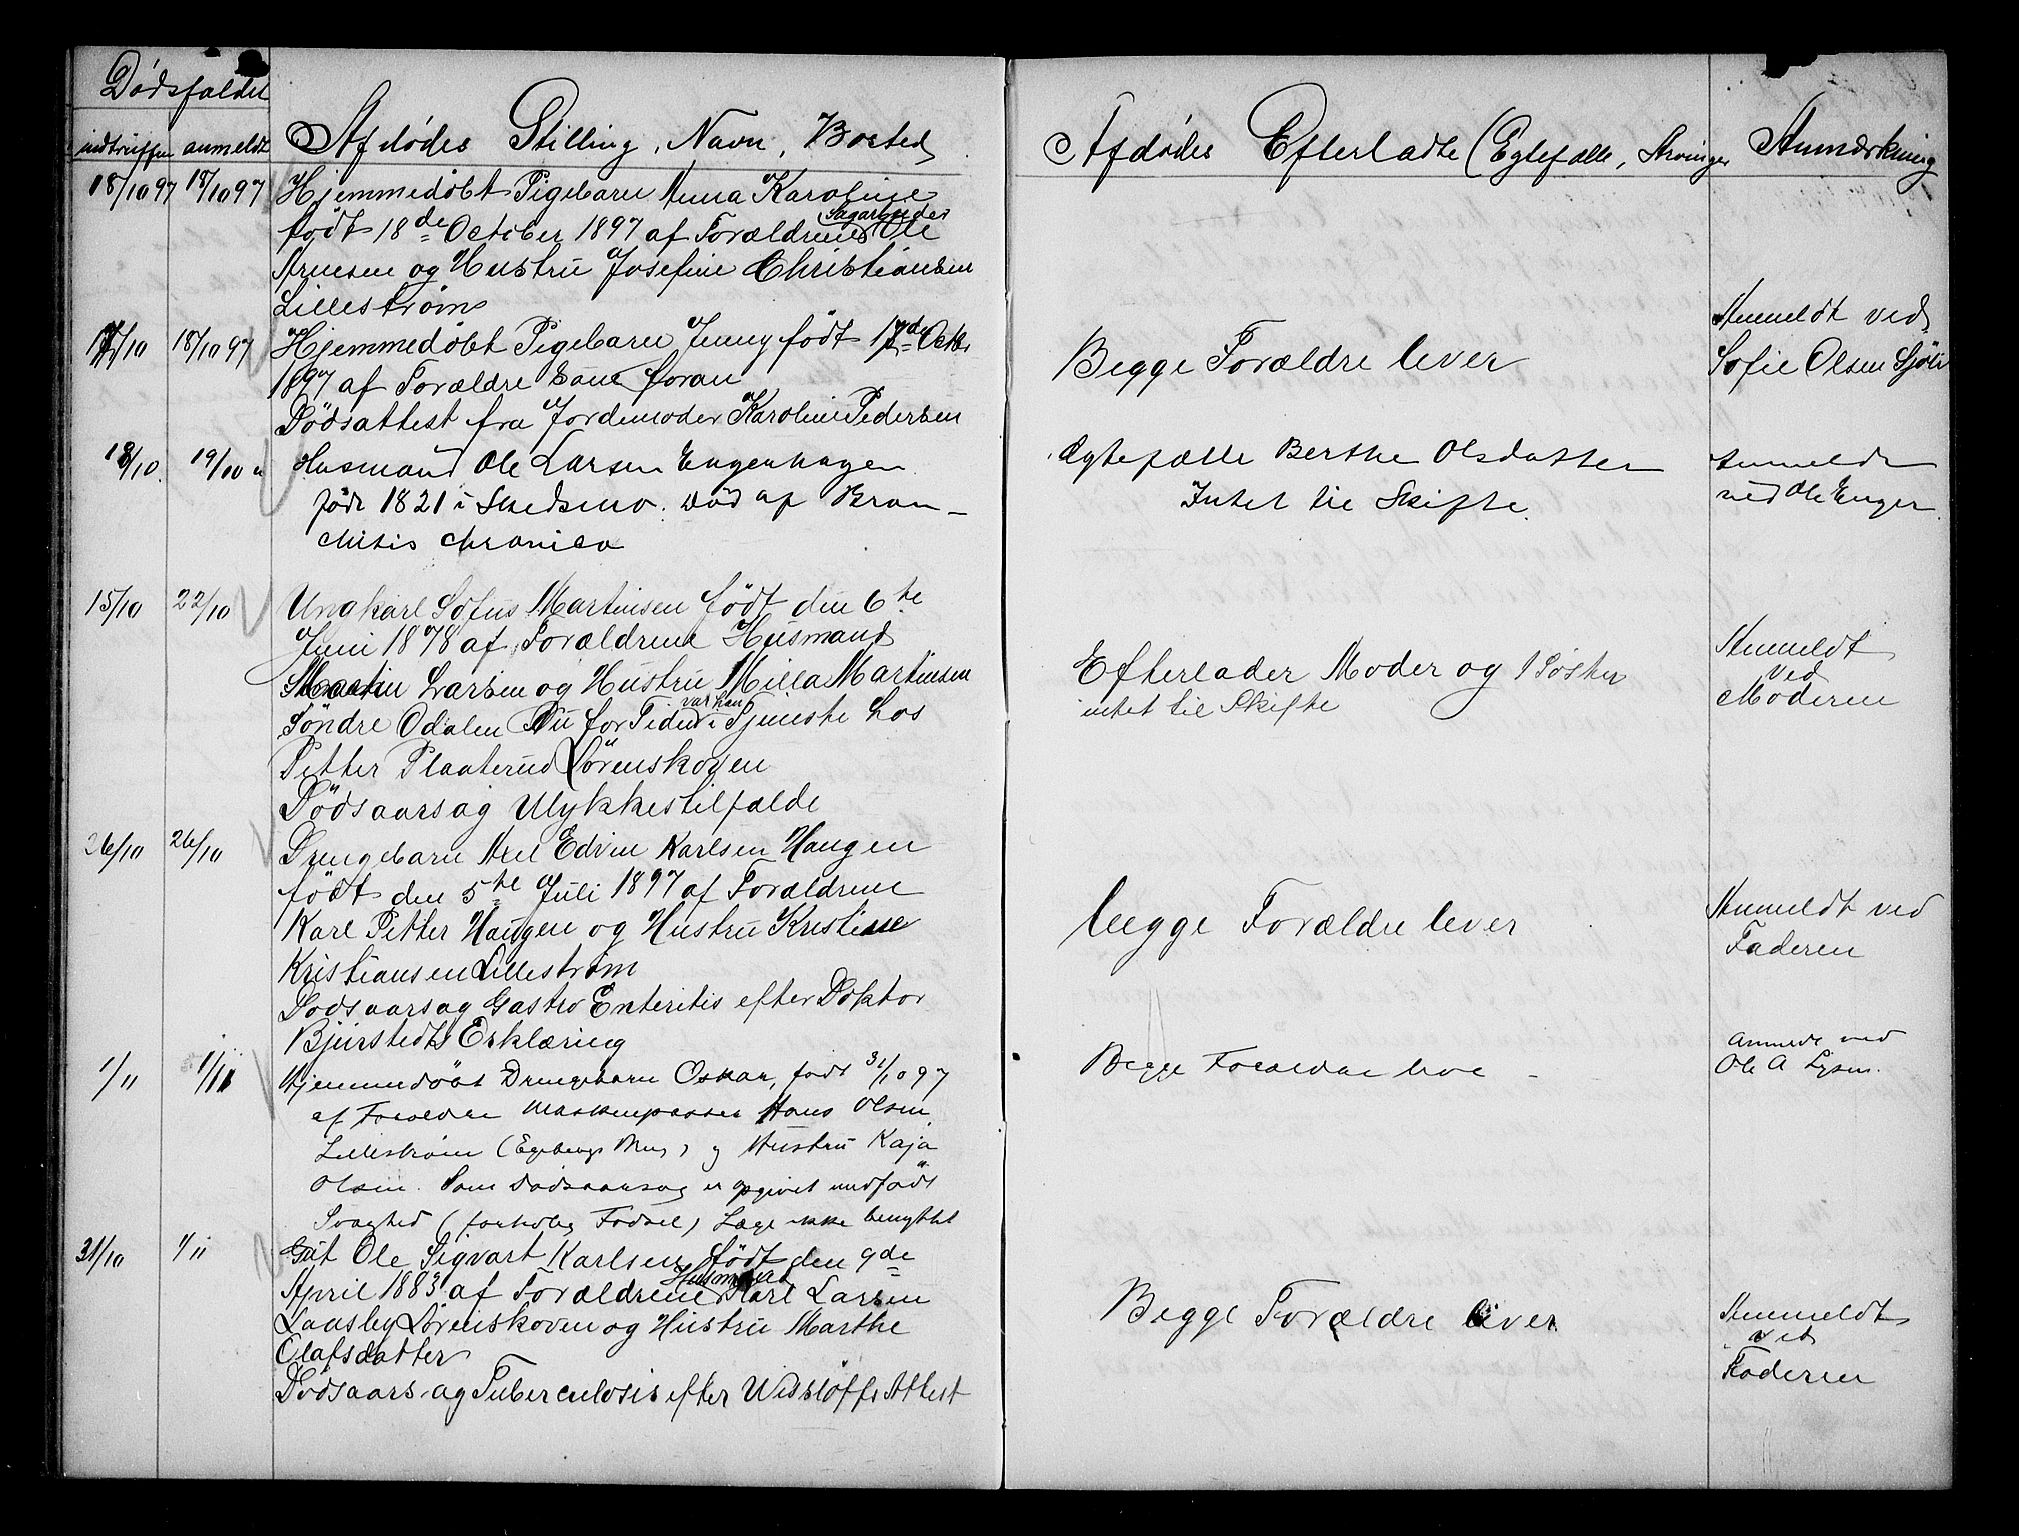 Dødsfaldet
indtruffen anmeldt Afdødes Stilling, Navn, Bosted
18/10 97 18/10 97 Hjemmedøbt Pigebarn Anna Karoline
født 18de October 1897 af Forældrene Sagarbeider Ole
Arnesen og Hustru Josefine Christiansen
Lillestrøm
17/10 18/10 97 Hjemmedøbt Pigebarn Jenny født 17de Octbr
1897 af Forældre som foran
Dödsattest fra Jordemoder Karoline Pedersen
18/10. 19/10 " Husmand Ole Larsen Engenhagen
født 1821 i Skedsmo. Død af Bron-
chitis chronica
15/10 22/10 Ungkarl Sofus Martinsen født den 6te
Juni 1878 af Forældrene Husmand
Martin Larsen og Hustru Milla Martinsen
Söndre Odalen Nu for Tiden var han i Tjeneste hos
Petter Plaaterud Lörenskogen
Dödsaarsag Ulykkestilfælde
26/10 26/10 Drengebarn Axel Edvin Karlsen Haugen
født den 5te Juli 1897 af Forældrene
Karl Petter Haugen og Hustru Kristine
Kristiansen Lillestrøm
Dødsaarsag Gastro Enteritis efter Doktor
Bjørstedts Erklæring
1/11 1/11 Hjemmedöbt Drengebarn Oskar, født 31/10 97
af Forældre Maskenpasser Hans Olsen
Lillestrøm (Egebergs Brug) og Hustru Kaja
Olsen. Som Dødsaarsag er opgivet medfødt
Svaghed (fortidlig Fødsel) Læge ikke benyttet
31/10 1/11 Gut Ole Sigvart Karlsen født den 9de
April 1883 af Forældrene Husmand Karl Larsen
Laasby Lørenskoven og Hustru Marthe
Olafsdatter
Dødsaarsag Tuberculosis efter Widsløffs Attest
Afdødes Efterladte (Egtefælle, Arvinger Anmærkning
Begge Forældre lever
Anmeldt ved
Sofie Olsen
Egtefælle Berthe Olsdatter
Intet til Skifte.
Anmeldt
ved Ole Enger
Efterlader Moder og 1 Søster
intet til Skifte
Anmeldt
ved
Moderen
Begge Forældre lever
Anmeldt ved
Faderen
Begge Forældre leve -
Anmeldt ved
Ole A
Begge Forældre lever
Anmeldt
ved
Faderen